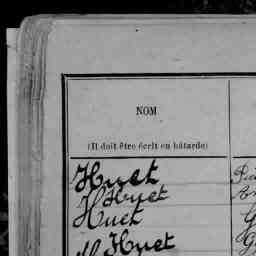 NOM
(Il doit être écrit en bâtarde)
Huet
Huet
Huet
Huet